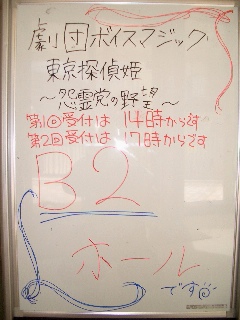 劇団ボイスマジック
東京探偵姫
～怨霊党の野望～
第1回受付は 14時からです
第2回受付は 17時からです
B2
ホール
です